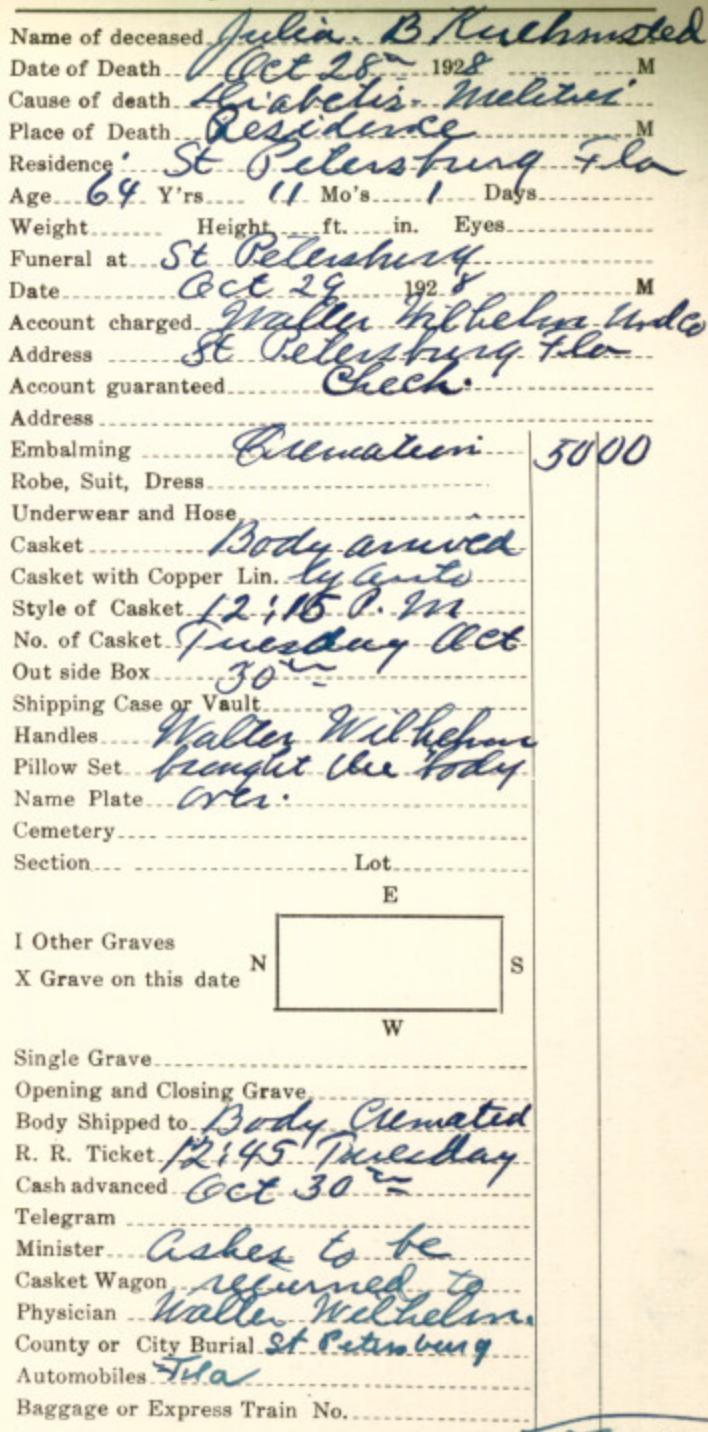 Name of deceased Julia. B Kuehmsted
Date of Death Oct 28th 1928 M
Cause of death Diabetis- Melitus
Place of Death Residence M
Residence St Petersburg Fla
Age 64 Y'rs 11 Mo's 1 Days
Weight Height ft. in. Eyes
Funeral at St Petersburg
Date Oct 29 1928 M
Account charged Walter Wilhelm Und Co
Address St Petersburg Fla
Account guaranteed Check.
Address
Embalming Cremation 50 00
Robe, Suit, Dress
Underwear and Hose
Casket Body arrived
Casket with Copper Lin. by auto
Style of Casket 12:15 P. M
No. of Casket Tuesday Oct
Out side Box 30th
Shipping Case or Vault
Handles Walter Wilhelm
Pillow Set brought the body
Name Plate over.
Cemetery
Section Lot
E
I Other Graves
N S
X Grave on this date
W
Single Grave
Opening and Closing Grave
Body Shipped to Body Cremated
R. R. Ticket 12:45 Tuesday
Cash advanced Oct 30th
Telegram
Minister Ashes to be
Casket Wagon returned to
Physician Walter Wilhelm.
County or City Burial St Petersburg
Automobiles Fla
Baggage or Express Train No.